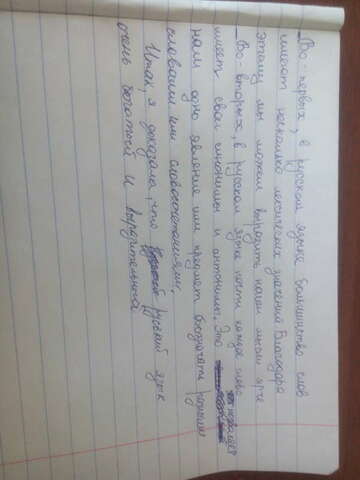 Во-первых, в русском языке большинство слов
имеют несколько лексических значений Благодаря
этому мы можем выразить наши мысли ярче
Во-вторых, в русском языке почти каждое слово
имеет свои синонимы и антонимы. Это позволяет
нам одно явление или предмет обозначать разными
словами или словосочетаниями.
Итак, я доказала, что русский язык
очень богатый и выразительный.